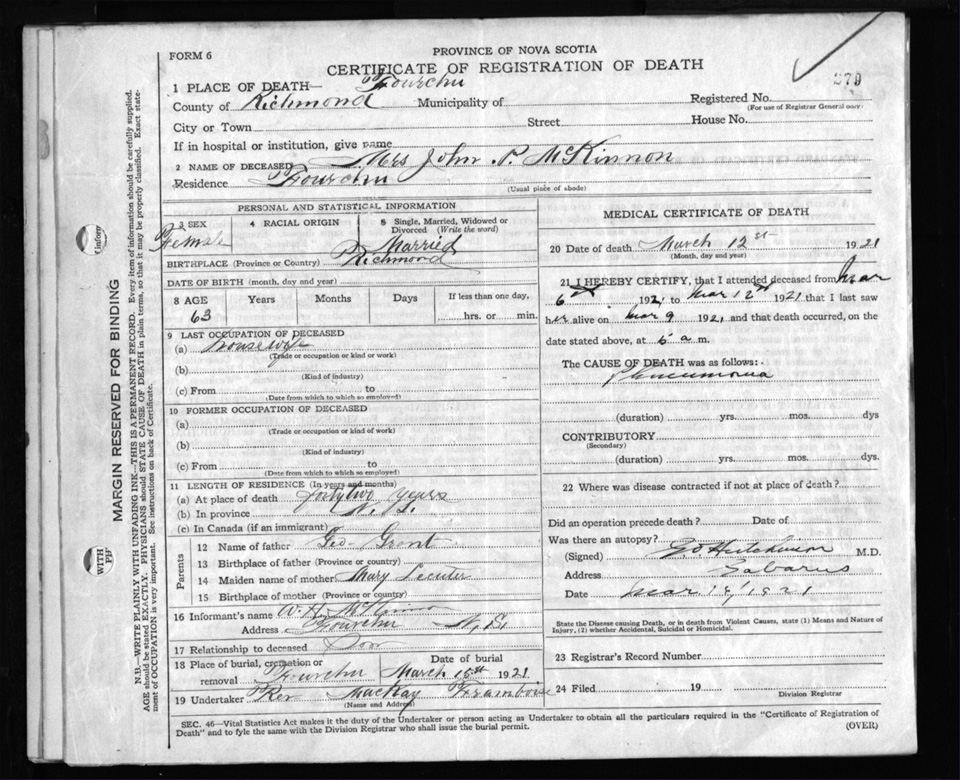 FORM 6
PROVINCE OF NOVA SCOTIA
CERTIFICATE OF REGISTRATION OF DEATH
379
1 PLACE OF DEATH— Fourchu
County of Richmond Municipality of Registered No.
(For use of Registrar General only)
City or Town Street House No.
If in hospital or institution, give name
2 NAME OF DECEASED Mrs John P. McKinnon
Residence Fourchu
(Usual place of abode)
PERSONAL AND STATISTICAL INFORMATION
3 SEX 4 RACIAL ORIGIN 5 Single, Married, Widowed or Divorced (Write the word)
Female Married
BIRTHPLACE (Province or Country) Richmond
DATE OF BIRTH (month, day and year)
8 AGE Years Months Days If less than one day,
63 hrs. or min.
9 LAST OCCUPATION OF DECEASED
(a) housewife
(Trade or occupation or kind or work)
(b)
(Kind of industry)
(c) From to
(Date from which to which so employed)
10 FORMER OCCUPATION OF DECEASED
(a)
(Trade or occupation or kind of work)
(b)
(Kind of industry)
(c) From to
(Date from which to which so employed)
11 LENGTH OF RESIDENCE (In years and months)
(a) At place of death forty two years
(b) In province N. S.
(c) In Canada (if an immigrant)
Parents
12 Name of father Geo. Grant
13 Birthplace of father (Province or country)
14 Maiden name of mother Mary
15 Birthplace of mother (Province or country)
16 Informant's name W. H. McKinnon
Address Fourchu N, S.
17 Relationship to deceased Son
18 Place of burial, cremation or removal Fourchu Date of burial March 15st 1921
19 Undertaker Rev MacKay Framboise
(Name and Address)
MEDICAL CERTIFICATE OF DEATH
20 Date of death March 12st 1921
(Month, day and year)
21 I HEREBY CERTIFY, that I attended deceased from Mar
6 1921 to Mar 12 1921 that I last saw
her alive on Mar 9 1921 and that death occurred, on the
date stated above, at 6 a m.
The CAUSE OF DEATH was as follows:
Pneumonia
(duration) yrs. mos. dys
CONTRIBUTORY
(Secondary)
(duration) yrs. mos. dys.
22 Where was disease contracted if not at place of death?
Did an operation precede death? Date of
Was there an autopsy?
(Signed) Hutchinson M.D.
Address Gabarus
Date Mar 1921
State the Disease causing Death, or in death from Violent Causes, state (1) Means and Nature of
Injury, (2) whether Accidental, Suicidal or Homicidal.
23 Registrar's Record Number
24 Filed 19
Division Registrar
SEC. 46—Vital Statistics Act makes it the duty of the Undertaker or person acting as Undertaker to obtain all the particulars required in the "Certificate of Registration of
Death" and to fyle the same with the Division Registrar who shall issue the burial permit.
(OVER)
MARGIN RESERVED FOR BINDING
N.B.—WRITE PLAINLY WITH UNFADING INK—THIS IS A PERMANENT RECORD. Every item of information should be carefully supplied.
AGE should be stated EXACTLY. PHYSICIANS should STATE CAUSE OF DEATH in plain terms, so that it may be properly classified. Exact state-
ment of OCCUPATION is very important. See instructions on back of Certificate.
WITH